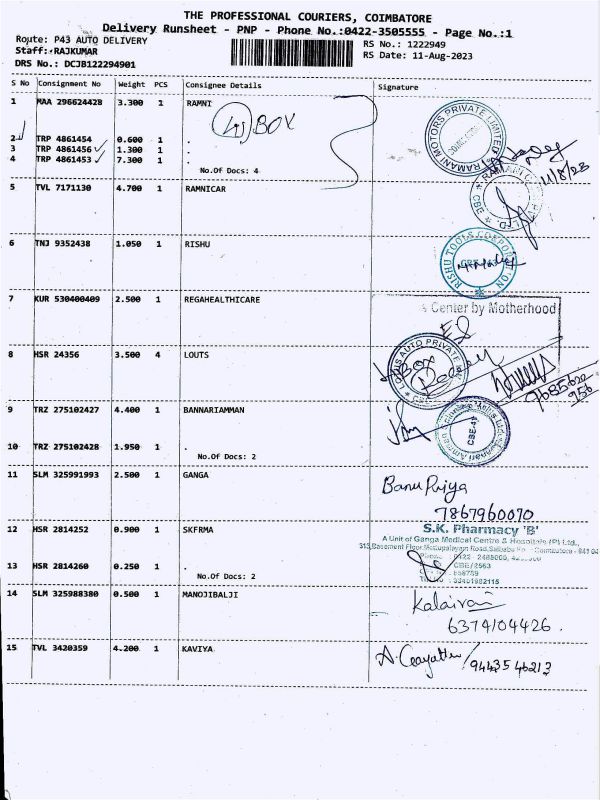 THE PROFESSIONAL COURIERS, COIMBATORE
Delivery Runsheet - PNP - Phone No.:0422-3505555 - Page No.:1
Route: P43 AUTO DELIVERY
RS No.: 1222949
Staff: RAJKUMAR
RS Date: 11-Aug-2023
DRS No.: DCJB122294901
S No Consignment No Weight PCS Consignee Details Signature
1 MAA 296624428 3.300 1 RAMNI
4 BOX
2 TRP 4861454 0.600 1 .
3 TRP 4861456 1.300 1 .
4 TRP 4861453 7.300 1 .
No.Of Docs: 4
RAMANI MOTORS PRIVATE LIMITED
11/8/23
CBE
5 TVL 7171130 4.700 1 RAMNICAR
6 TNJ 9352438 1.050 1 RISHU
RISHU TOOLS CORPORATION
CBE
7 KUR 530400409 2.500 1 REGAHEALTHCARE
Center by Motherhood
8 HSR 24356 3.500 4 LOUTS
AUTO PRIVATE
BOX
9685622
956
9 TRZ 275102427 4.400 1 BANNARIAMMAN
CBE-41
10 TRZ 275102428 1.950 1 .
No.Of Docs: 2
11 SLM 325991993 2.500 1 GANGA
Banu Priya
7867960070
12 HSR 2814252 0.900 1 SKFRMA
S.K. Pharmacy 'B'
A Unit of Ganga Medical Centre & Hospitals (P) Ltd.,
13 HSR 2814260 0.250 1 .
No.Of Docs: 2
14 SLM 325988380 0.500 1 MANOJIBALJI
Kalaivani
6374104426.
15 TVL 3420359 4.200 1 KAVIYA
9443546213